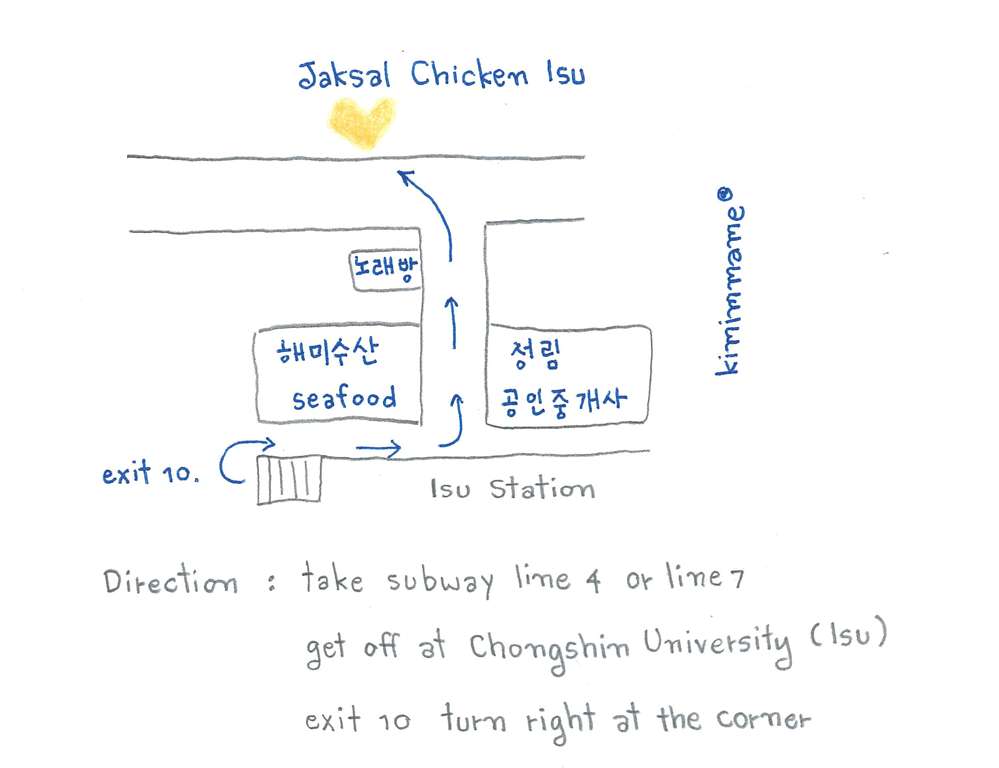 Jaksal Chicken Isu
kimimmame
노래방
해미수산
seafood
정림
공인중개사
exit 10.
Isu Station
Direction : take subway line 4 or line 7
get off at Chongshin University (Isu)
exit 10 turn right at the corner